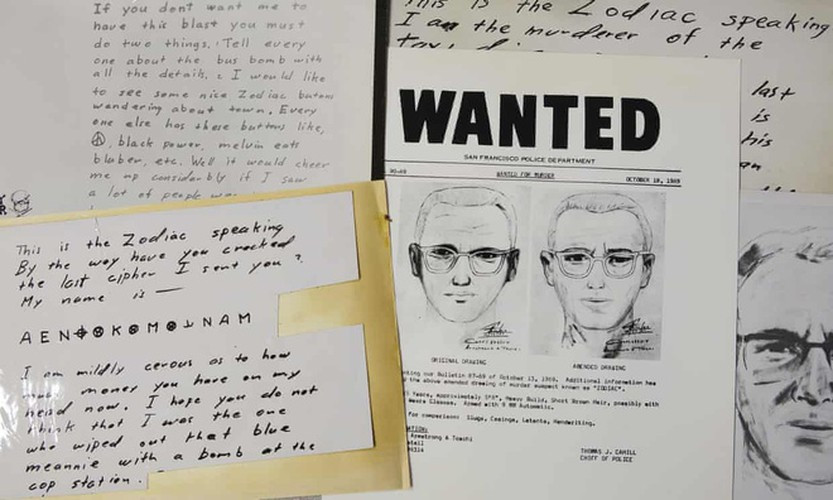 If you dont want me to
have this blast you must
do two things. Tell every
one about the bus bomb with
all the details. 2 I would like
to see some nice Zodiac butons
wandering about town. Every
one else has these buttons like,
☮, black power, melvin eats
bluber, etc. Well it would cheer
me up considerbly if I saw
a lot of people
This is the Zodiac speaking
I am the murderer of the
last
is
his
an
WANTED
SAN FRANCISCO POLICE DEPARTMENT
90-69 WANTED FOR MURDER OCTOBER 18, 1969
ORIGINAL DRAWING AMENDED DRAWING
our Bulletin 87-69 of October 13, 1969. Additional information has
the above amended drawing of murder suspect known as "ZODIAC".
Years, approximately 5'8", Heavy Build, Short Brown Hair, possibly with
Wears Glasses. Armed with 9 MM Automatic.
for comparison: Slugs, Casings, Latents, Handwriting.
Armstrong & Toschi
THOMAS J. CAHILL
CHIEF OF POLICE
This is the Zodiac speaking
By the way have you cracked
the last cipher I sent you?
My name is —
A E N ⊕ ⊗ K ⊗ M ⊗ ⅃ N A M
I am mildly cerous as to how
much money you have on my
head now. I hope you do not
think that I was the one
who wiped out that blue
meannie with a bomb at the
cop station.